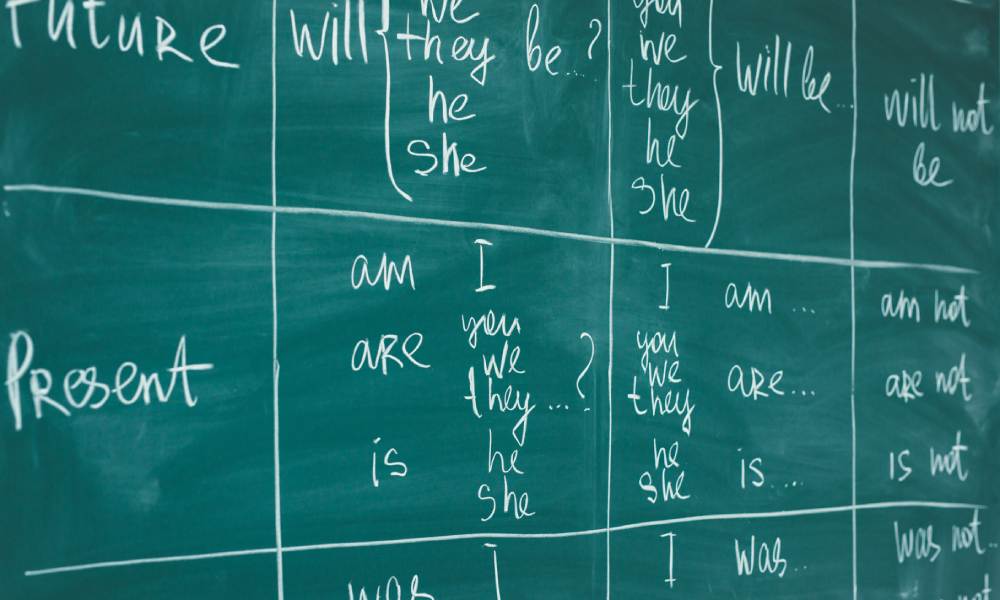 Future will { we they he she be....? you we they he she } will be... will not be
Present
am I
are you we they ...?
is he she
I am ...
you we they are...
he she is....
am not
are not
is not
was I
I was...
was not...
not